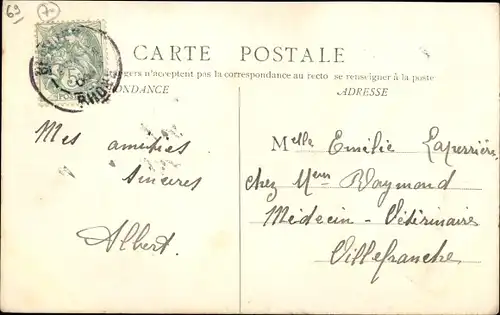 69
7
CARTE POSTALE
gers n'acceptent pas la correspondance au recto se renseigner à la poste
ONDANCE
ADRESSE
RHONE
Mes amitiés
sincères
Albert.
Melle Emilie Laperrière
chez Mem Raymond
Médecin - Vétérinaire
Villefranche